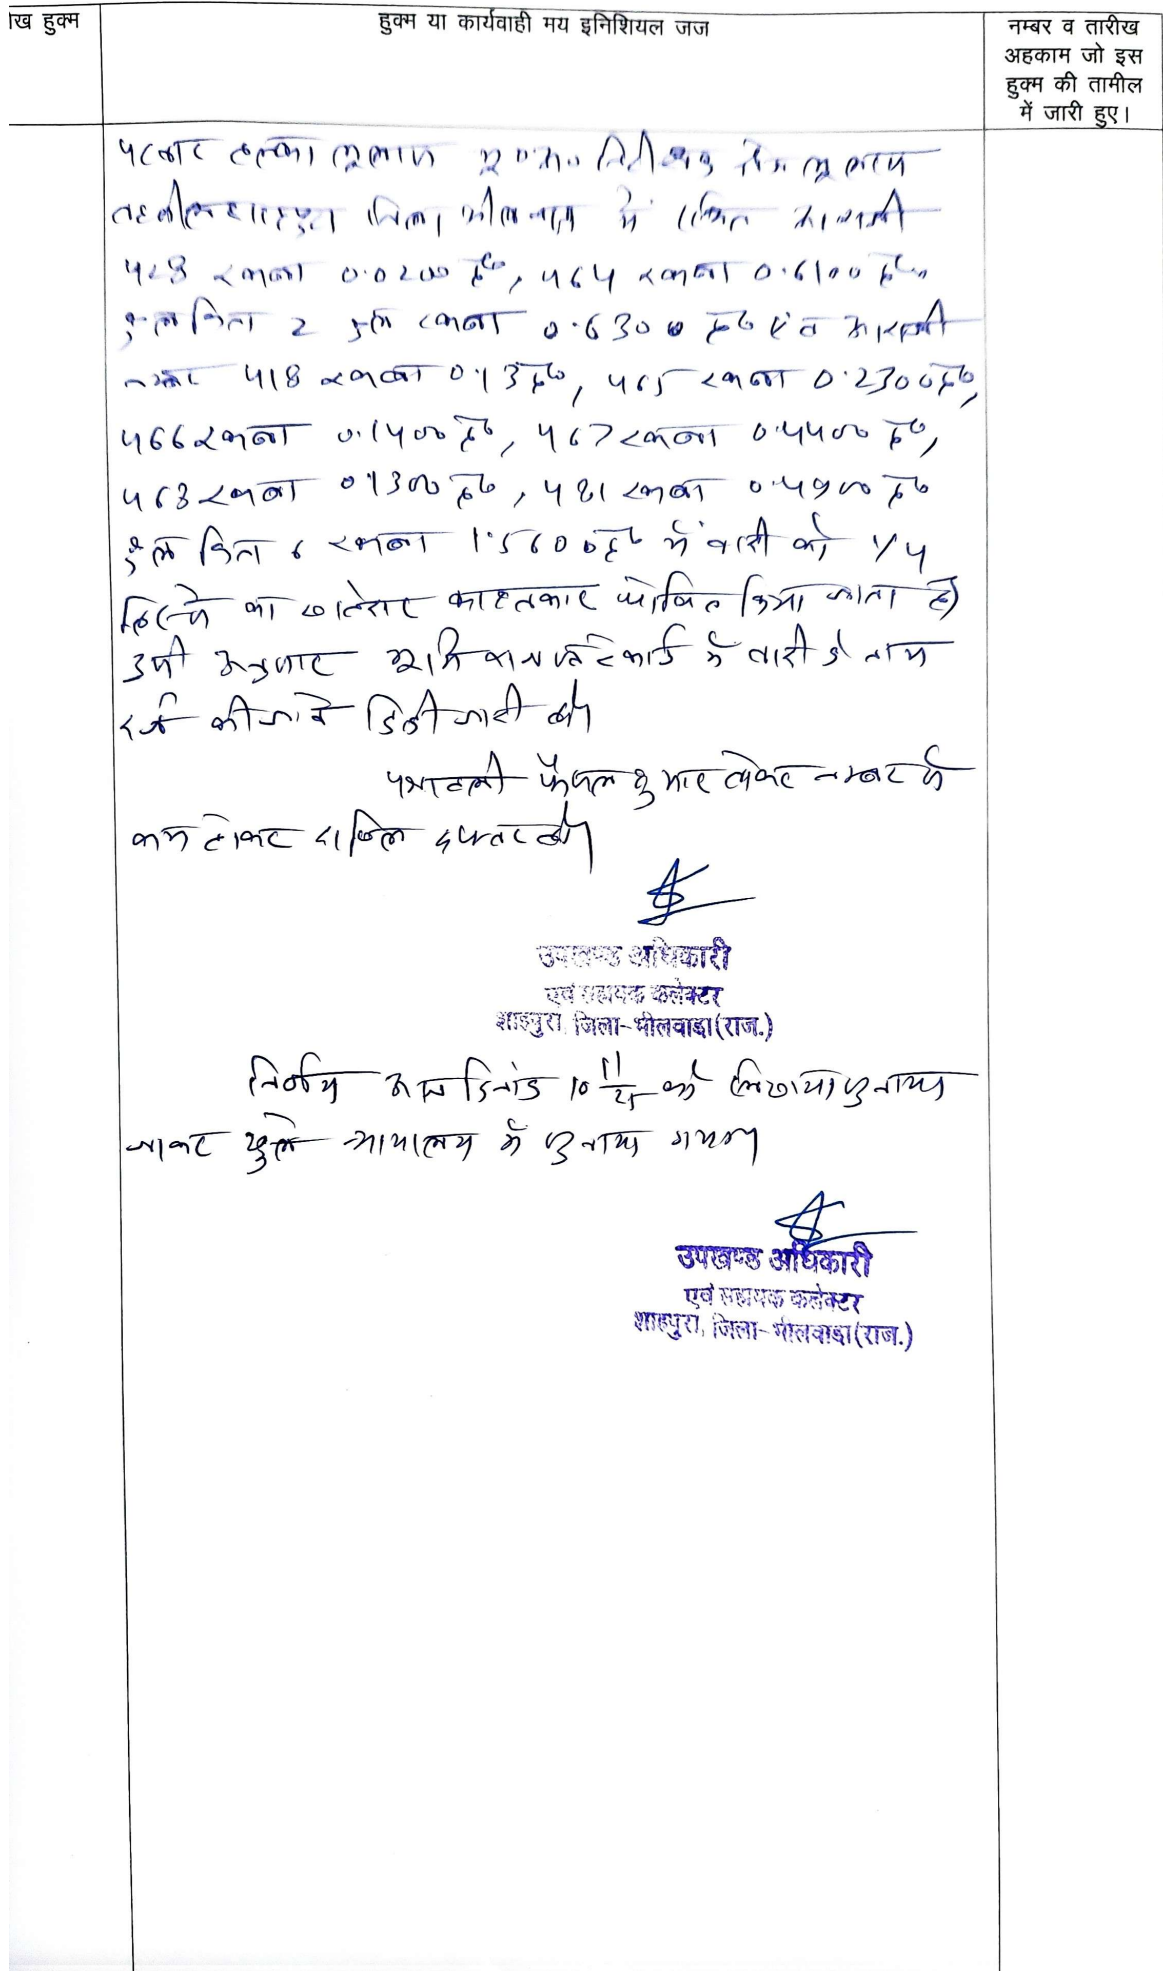 ख हुक्म
हुक्म या कार्यवाही मय इनिशियल जज
नम्बर व तारीख
अहकाम जो इस
हुक्म की तामील
में जारी हुए।
पटवार हल्का
जिला में स्थित आराजी
रकबा 0.0200 है०, 464 रकबा 0.6100 है०
कुल किता 2 कुल रकबा 0.6300 है० एवं आराजी
नम्बर 418 रकबा 0.13 है०, 465 रकबा 0.2300 है०,
466 रकबा 0.1400 है०, 467 रकबा 0.4400 है०,
468 रकबा 0.1300 है०, 481 रकबा 0.4900 है०
कुल किता 6 रकबा 1.5600 है० में वादी को 1/4
हिस्से का खातेदार काश्तकार घोषित किया जाता है।
उसी अनुसार रिकार्ड में वादी के नाम
दर्ज की जावे डिक्री जारी हो।
पत्रावली फैसल शुमार होकर नम्बर से
कम होकर दाखिल दफ्तर हो।
उपखण्ड अधिकारी
एवं सहायक कलेक्टर
शाहपुरा, जिला-भीलवाड़ा (राज.)
निर्णय आज दिनांक 10/11/25 को लिखाया सुनाया
जाकर खुले न्यायालय में सुनाया गया।
उपखण्ड अधिकारी
एवं सहायक कलेक्टर
शाहपुरा, जिला-भीलवाड़ा (राज.)